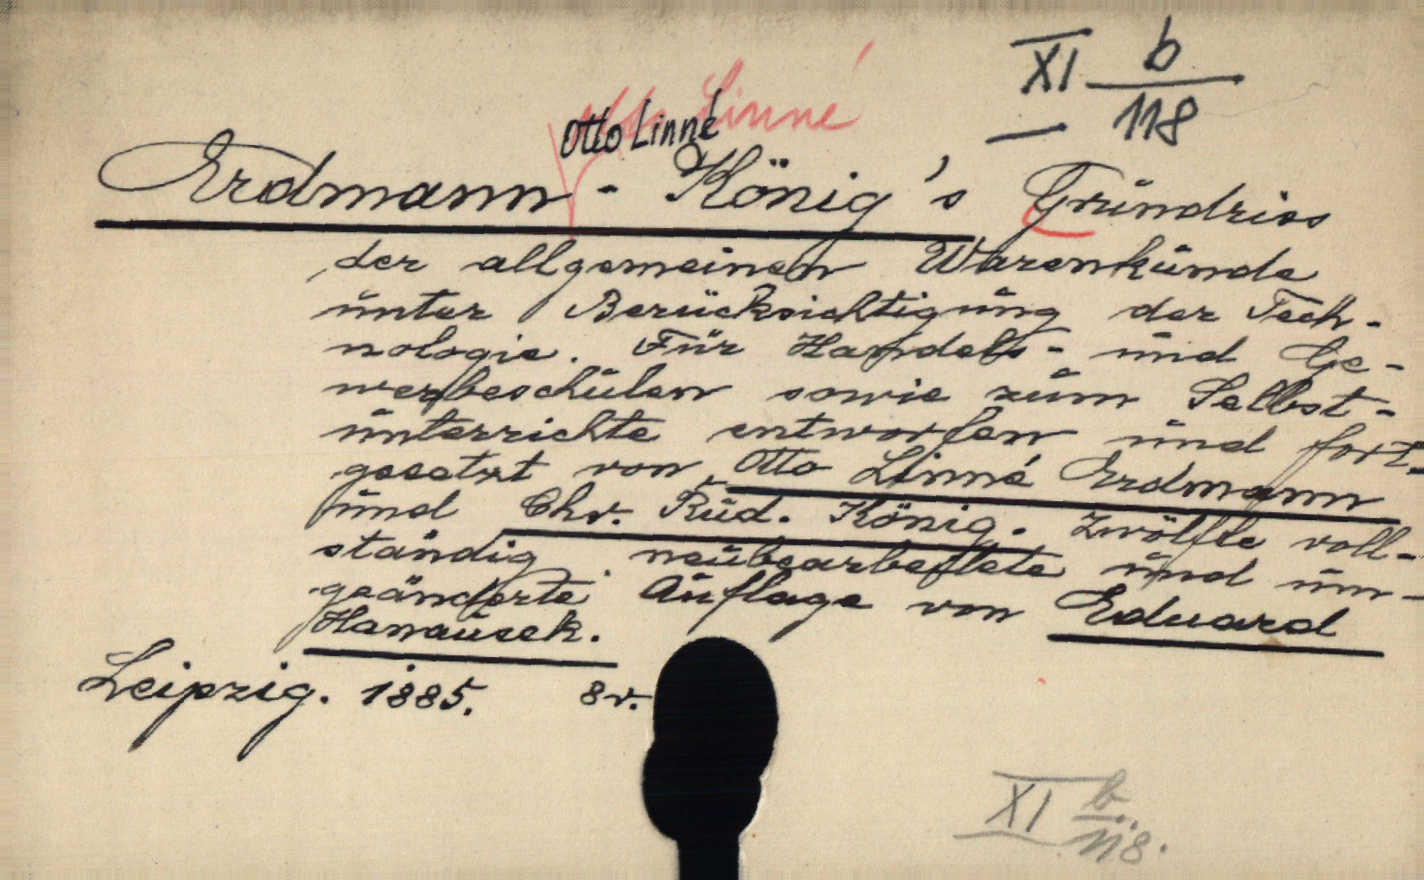 XI b
118
Otto Linné
Otto Linné
Erdmann - König's Grundriss
der allgemeinen Warenkunde
unter Berücksichtigung der Tech-
nologie. Für Handels- und Ge-
werbeschulen sowie zum Selbst-
unterrichte entworfen und fort-
gesetzt von Otto Linné Erdmann
und Chr. Rud. König. Zwölfte voll-
ständig neubearbeitete und um-
geänderte Auflage von Eduard
Hanausek.
Leipzig. 1885. 8r.
XI b.
118.